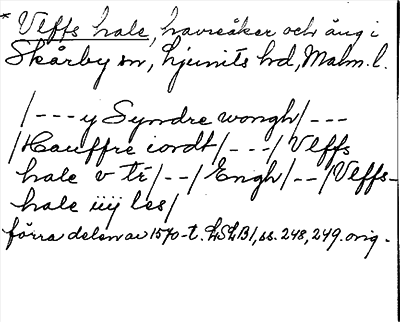 * Vlffs hale, havreåker och äng i
Skårby sn, Ljunits hd, Malm. l.
/---y Syndre wongh/---
/Hauffre iordt/---/Vlffs
hale v tr/--/Engh/--/Vlffs-
hale iiij les/
förra delen av 1570-t. LSLB1, ss. 248, 249. orig.